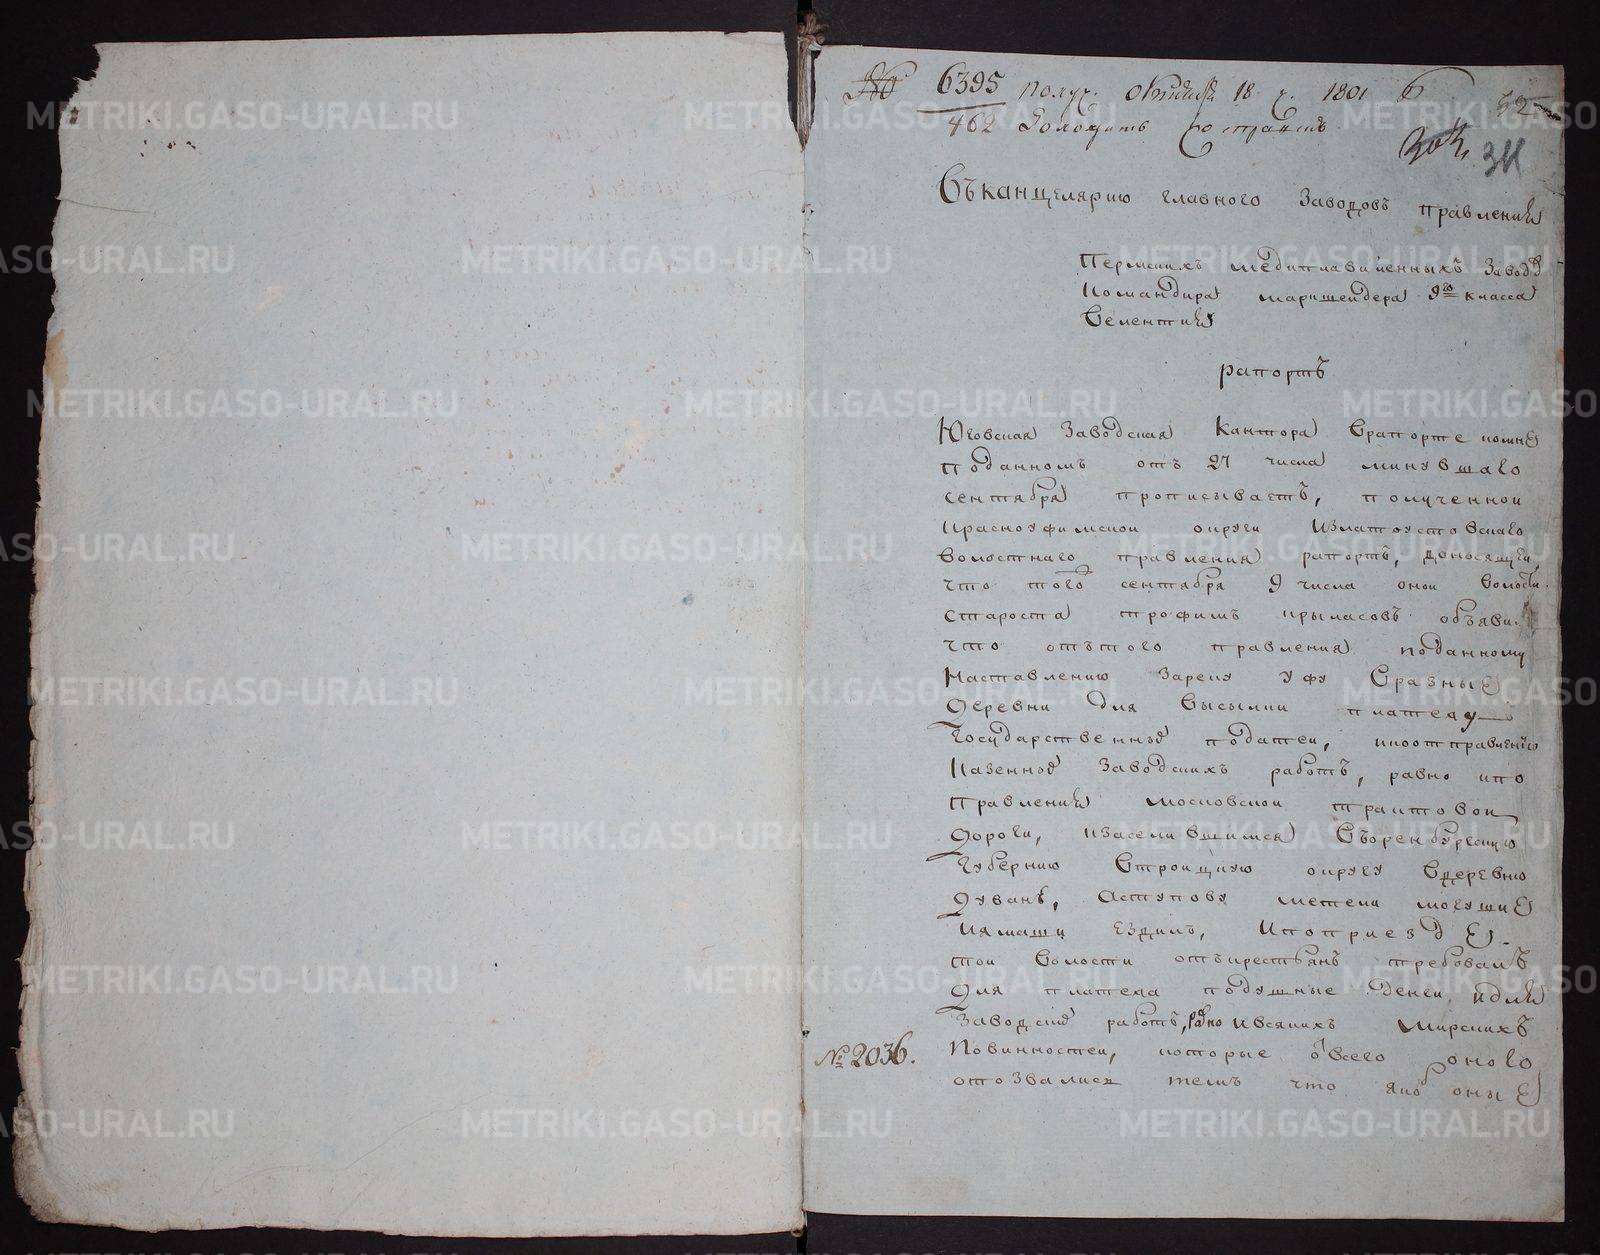 № 6395 получ. октября 18 ч. 1801
462 Доложить
52
311
Въ канцелярию главного заводовъ правления
Пермскихъ медиплавиленныхъ заводовъ
командира маркшейдера 9го класса
Селентия
рапортъ
Юговская заводская кантора врапорте комне
поданномъ отъ 27 числа минувшаго
сентября прописываетъ, полученной
красноуфимской округи Излатоустовскаго
волостнаго правления рапортъ, доносящей,
что того сентября 9 числа оной волости
староста трофимъ крыласовъ объяви
что отътого правления поданному
наставлению зареку уфу вразные
деревни для высылки платежу
государственной податей, ипоотправлению
казенной заводскихъ работъ, равно ипо
правления московской трактовой
дороги, изаселившимся въоренбургскую
губернию втроицкую округу вдеревню
дуванъ, аступову метели могуши
иямаши ездилъ, ипоприезде
той волости откресть‌янъ требовалъ
для платежа подушные денги идля
заводской работъ, равно ивсякихъ мирскихъ
повинностей, которые отвсего оного
отозвались темъ что якобы оные
№ 2036.
METRIKI.GASO-URAL.RU